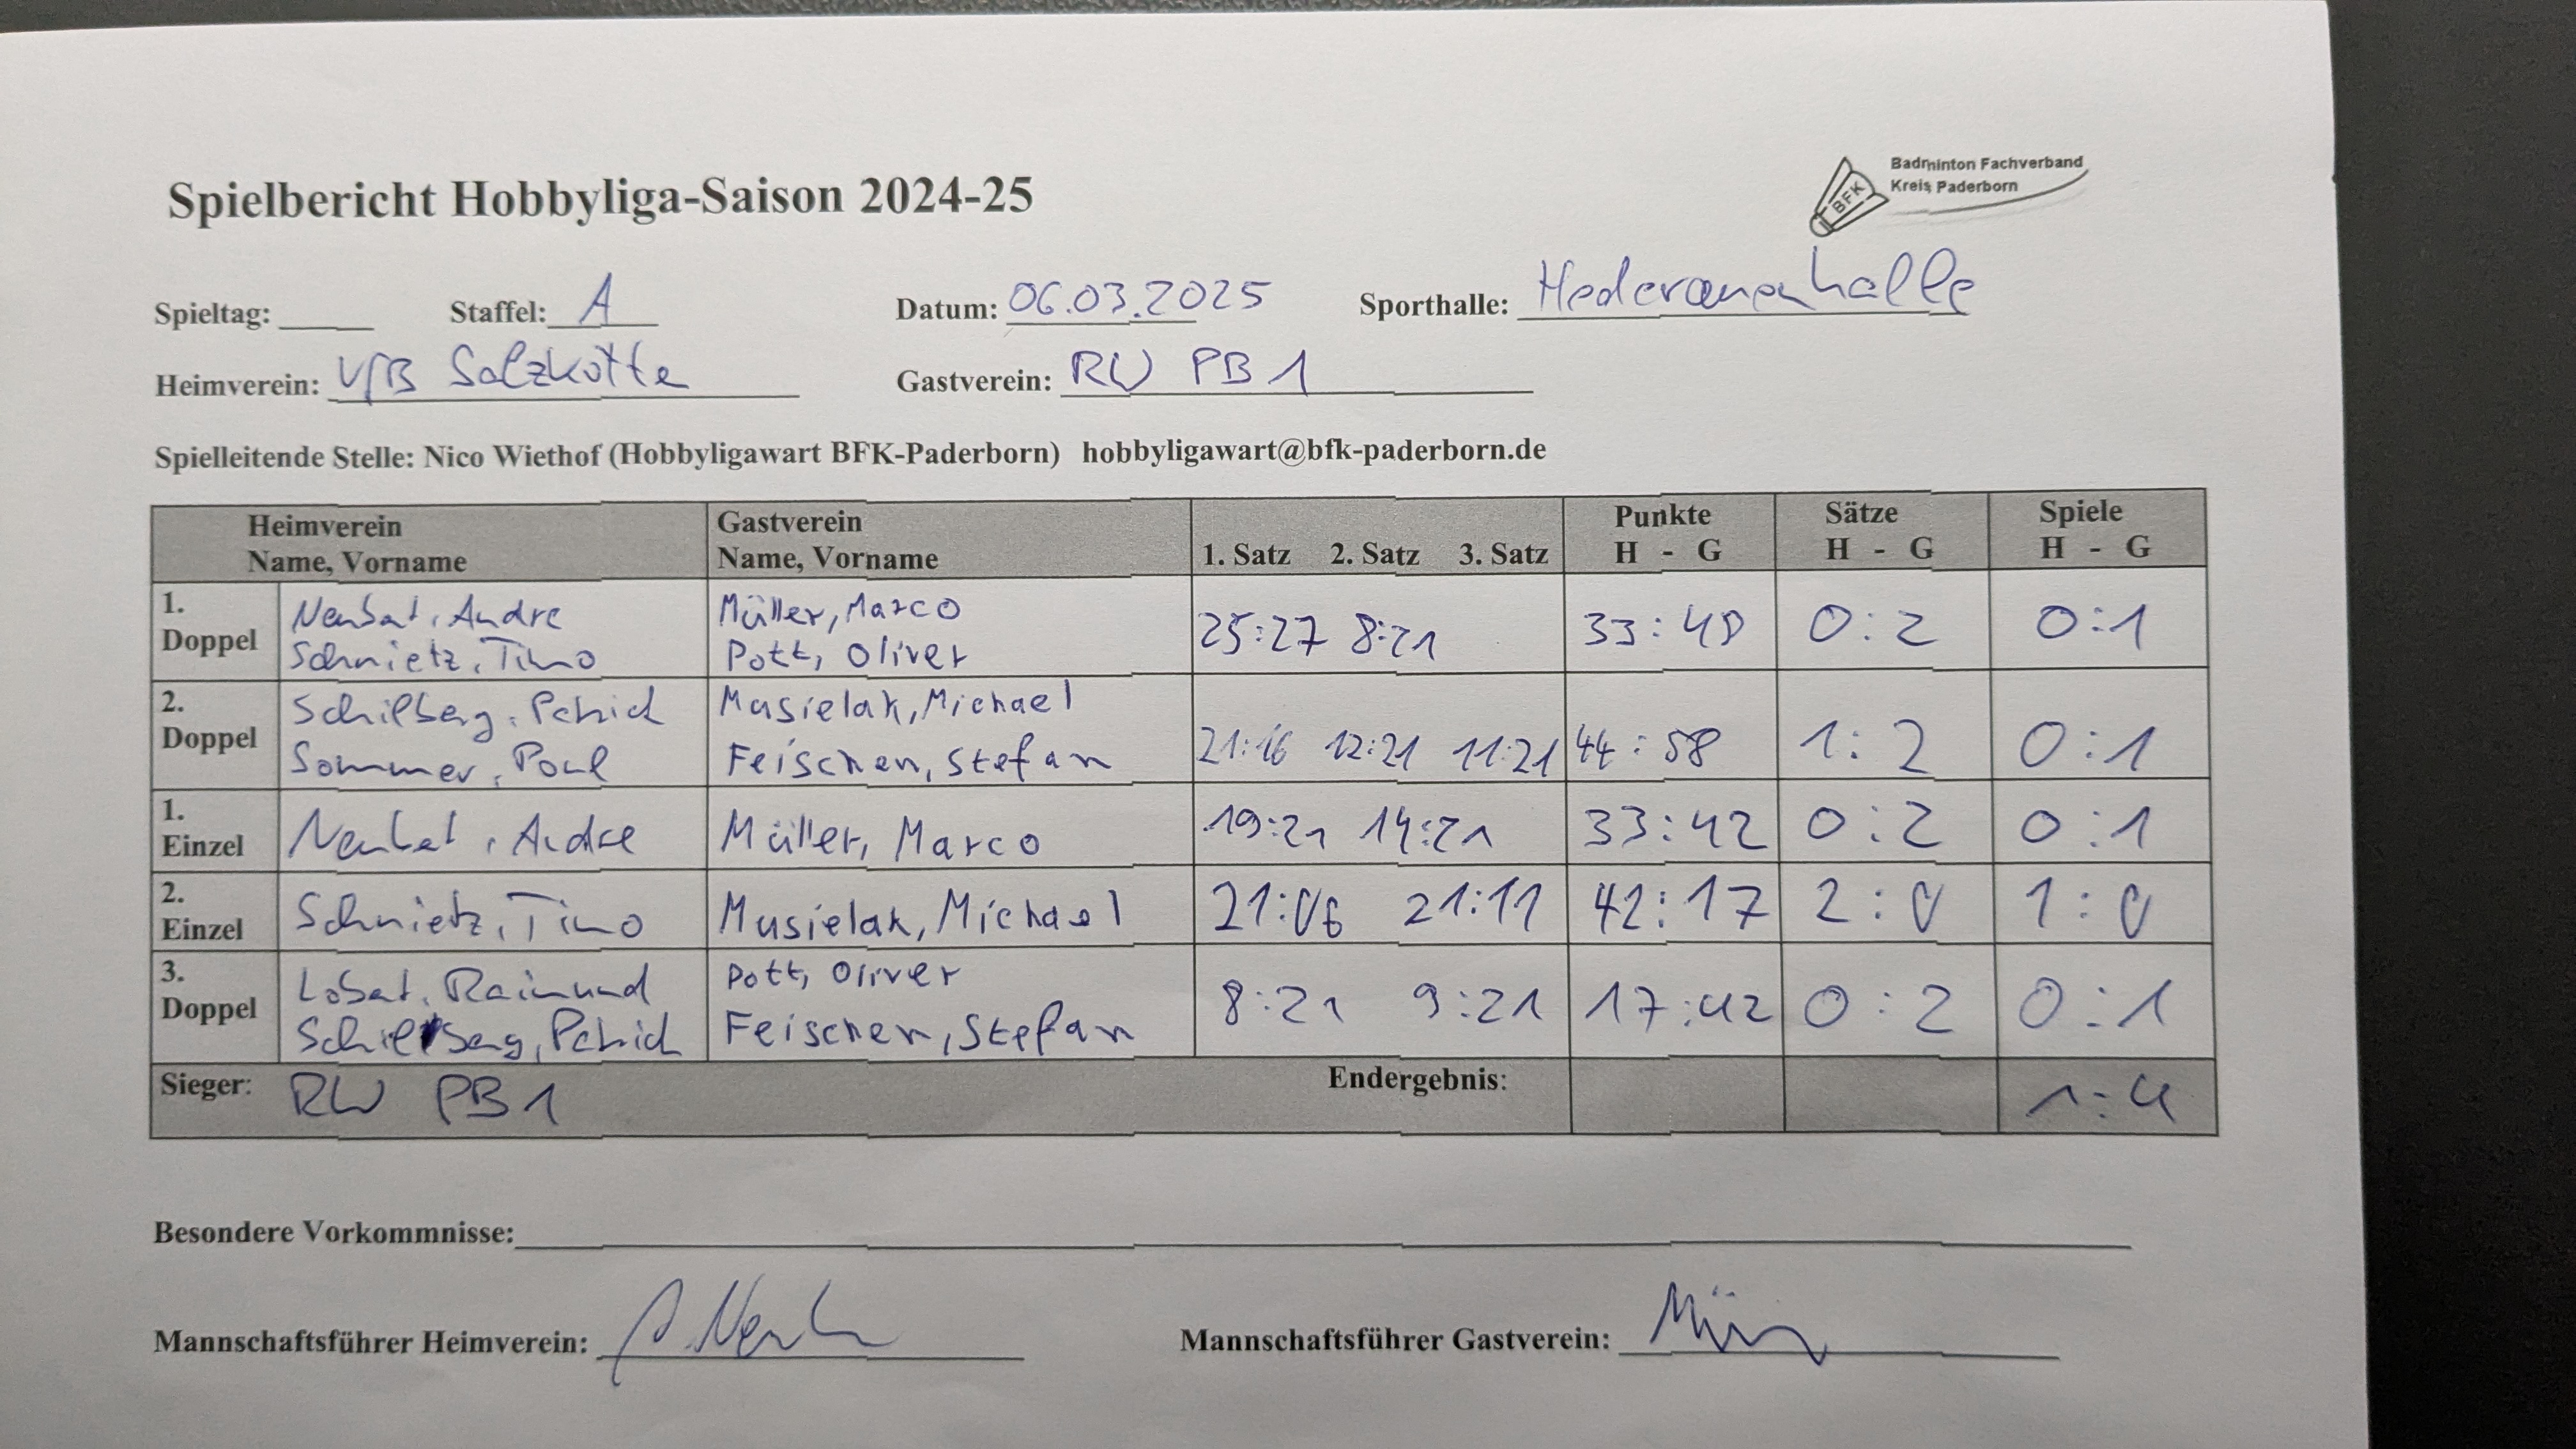 Spielbericht Hobbyliga-Saison 2024-25
BFK
Badminton Fachverband
Kreis Paderborn
Spieltag: Staffel: A Datum: 06.03.2025 Sporthalle: Hederauenhalle
Heimverein: VfB Salzkotten Gastverein: RW PB 1
Spielleitende Stelle: Nico Wiethof (Hobbyligawart BFK-Paderborn) hobbyligawart@bfk-paderborn.de
Heimverein Gastverein Punkte Sätze Spiele
Name, Vorname Name, Vorname 1. Satz 2. Satz 3. Satz H - G H - G H - G
1. Doppel
Andre Müller, Marco
Schnietz, Timo Pott, Oliver
25:27 8:21 33:48 0:2 0:1
2. Doppel
Schilberg, Patrick Musielak, Michael
Sommer, Paul Feischen, Stefan
21:16 12:21 11:21 44:58 1:2 0:1
1. Einzel
Andre Müller, Marco
19:21 14:21 33:42 0:2 0:1
2. Einzel
Schnietz, Timo Musielak, Michael
21:06 21:11 42:17 2:0 1:0
3. Doppel
Raimund Pott, Oliver
Schilberg, Patrick Feischen, Stefan
8:21 9:21 17:42 0:2 0:1
Sieger: RW PB 1 Endergebnis: 1:4
Besondere Vorkommnisse:
Mannschaftsführer Heimverein: Mannschaftsführer Gastverein: